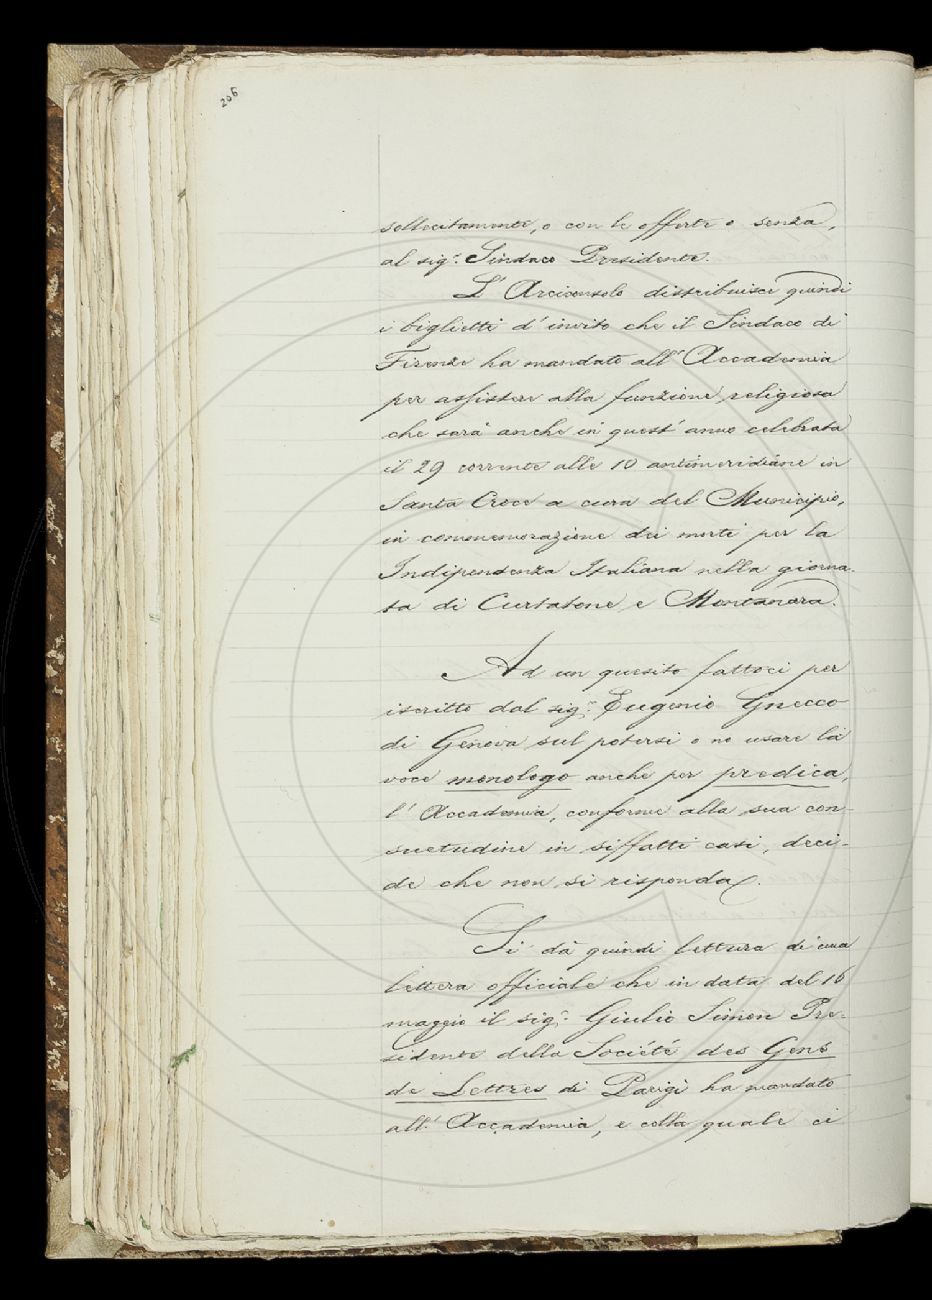 206
sollecitamente, o con le offerte o senza,
al sig.r Sindaco Presidente.
L'Arciconsolo distribuisce quindi
i biglietti d'invito che il Sindaco di
Firenze ha mandato all'Accademia
per assistere alla funzione religiosa
che sarà anche in quest'anno celebrata
il 29 corrente alle 10 antimeridiane in
Santa Croce a cura del Municipio,
in commemorazione dei morti per la
Indipendenza Italiana nella giorna-
ta di Curtatone e Montanara.
Ad un quesito fattoci per
iscritto dal sig.r Eugenio Gnecco
di Genova sul potersi o no usare la
voce monologo anche per predica,
l'Accademia, conforme alla sua con-
suetudine in siffatti casi, deci-
de che non si risponda.
Si dà quindi lettura di una
lettera officiale che in data del 16
maggio il sig.r Giulio Simon Pre-
sidente della Société des Gens
de Lettres di Parigi ha mandato
all'Accademia, e colla quale ci